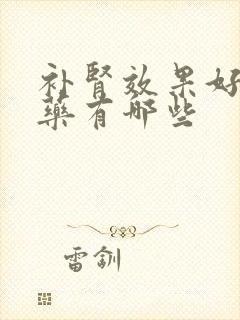 补肾效果好
药有哪些
雷钏